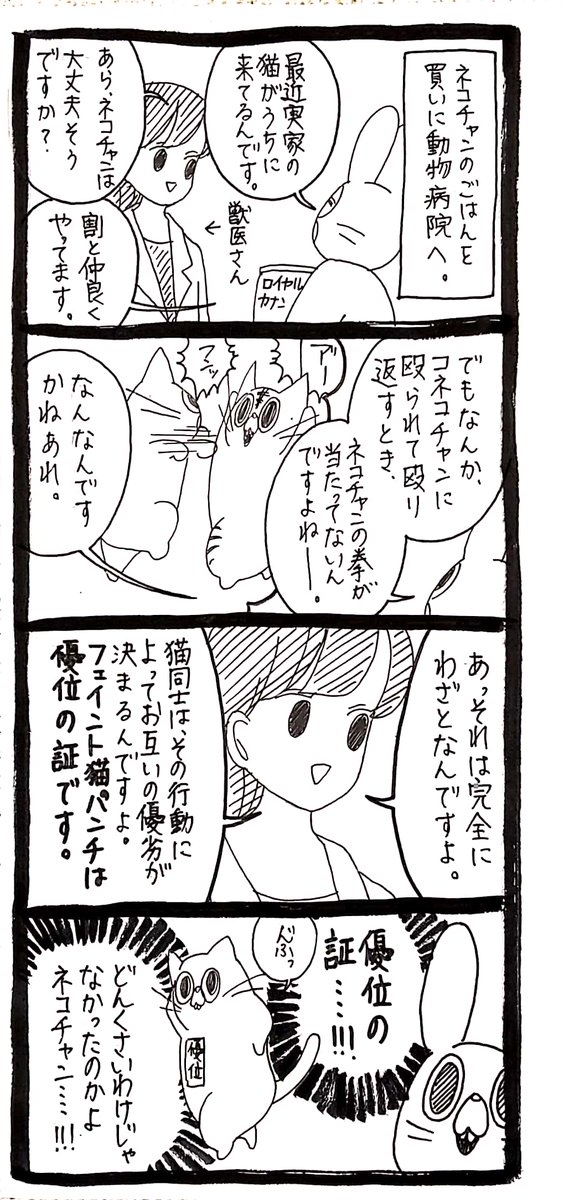 ネコチャンのごはんを
買いに動物病院へ。
最近実家の
猫がうちに
来てるんです。
ロイヤル
カナン
←獣医さん
あら、ネコチャンは
大丈夫そう
ですか?
割と仲良く
やってます。
でもなんか、
コネコチャンに
殴られて殴り
返すとき、
ネコチャンの拳が
当たってないん
ですよねー。
アー
なんなんです
かねあれ。
あっそれは完全に
わざとなんですよ。
猫同士は、その行動に
よってお互いの優劣が
決まるんですよ。
フェイント猫パンチは
優位の証です。
優位の
証……!!!
んふっ
優位
どんくさいわけじゃ
なかったのかよ
ネコチャン……!!!